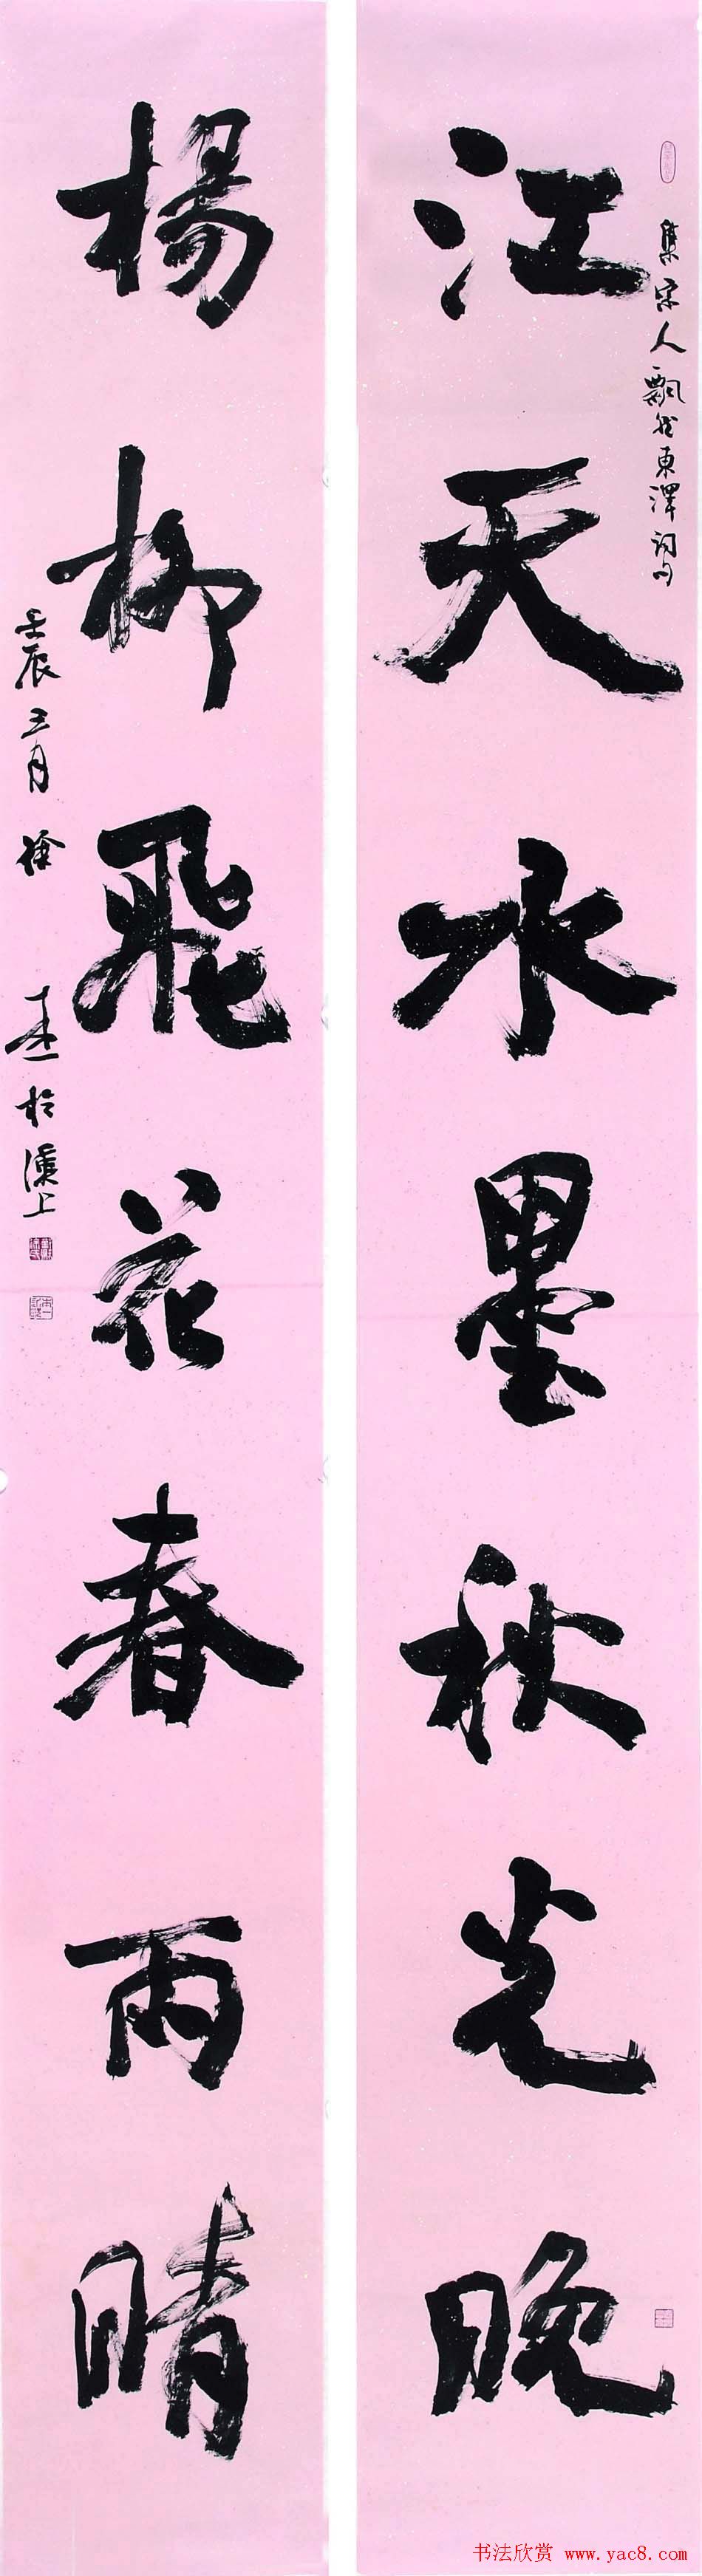 江天水墨秋光晚
集宋人飄然東澤詞句
楊柳飛花春雨晴
壬辰三月 徐 於漢上
书法欣赏 www.yac8.com